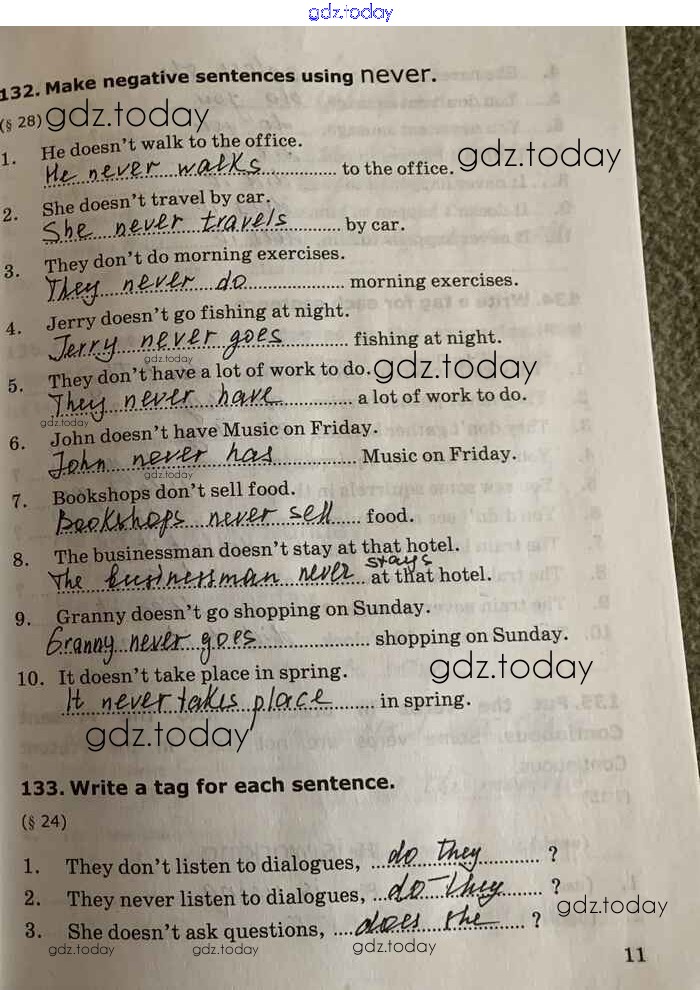 gdz.today
132. Make negative sentences using never.
(§ 28) gdz.today
1. He doesn't walk to the office.
He never walks to the office. gdz.today
2. She doesn't travel by car.
She never travels by car.
3. They don't do morning exercises.
They never do morning exercises.
4. Jerry doesn't go fishing at night.
Jerry never goes fishing at night.
gdz.today
5. They don't have a lot of work to do. gdz.today
They never have a lot of work to do.
gdz.today
6. John doesn't have Music on Friday.
John never has Music on Friday.
gdz.today
7. Bookshops don't sell food.
Bookshops never sell food.
8. The businessman doesn't stay at that hotel.
The businessman never stays at that hotel.
9. Granny doesn't go shopping on Sunday.
Granny never goes shopping on Sunday.
10. It doesn't take place in spring. gdz.today
It never takes place in spring.
gdz.today
133. Write a tag for each sentence.
(§ 24)
1. They don't listen to dialogues, do they ?
2. They never listen to dialogues, do they ?
gdz.today
3. She doesn't ask questions, does she ?
gdz.today gdz.today gdz.today
11